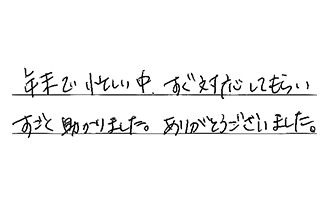 年末で忙しい中、すぐ対応してもらい
すごく助かりました。ありがとうございました。